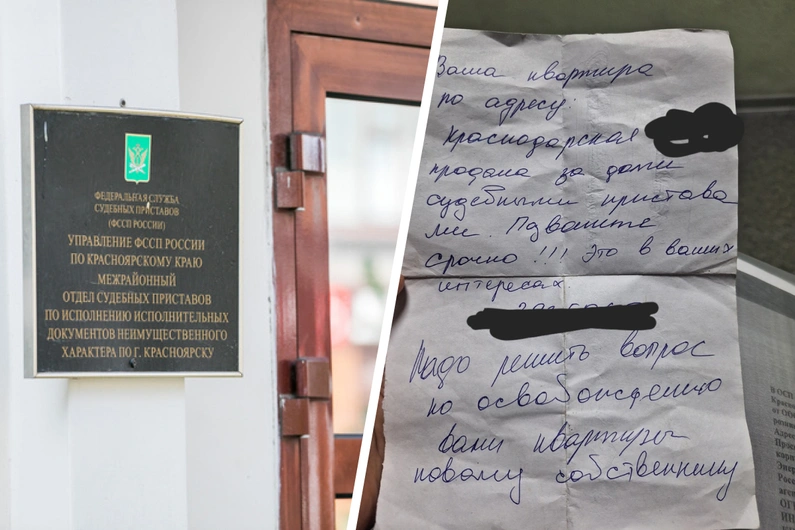 ФЕДЕРАЛЬНАЯ СЛУЖБА
СУДЕБНЫХ ПРИСТАВОВ
(ФССП РОССИИ)
УПРАВЛЕНИЕ ФССП РОССИИ
ПО КРАСНОЯРСКОМУ КРАЮ
МЕЖРАЙОННЫЙ
ОТДЕЛ СУДЕБНЫХ ПРИСТАВОВ
ПО ИСПОЛНЕНИЮ ИСПОЛНИТЕЛЬНЫХ
ДОКУМЕНТОВ НЕИМУЩЕСТВЕННОГО
ХАРАКТЕРА ПО Г. КРАСНОЯРСКУ
Ваша квартира
по адресу:
Краснодарская
продана за долги
судебными пристава
ми. Позвоните
срочно !!! Это в ваших
интересах
Надо решить вопрос
по освобождению
вами квартиры
новому собственнику
В ОСП